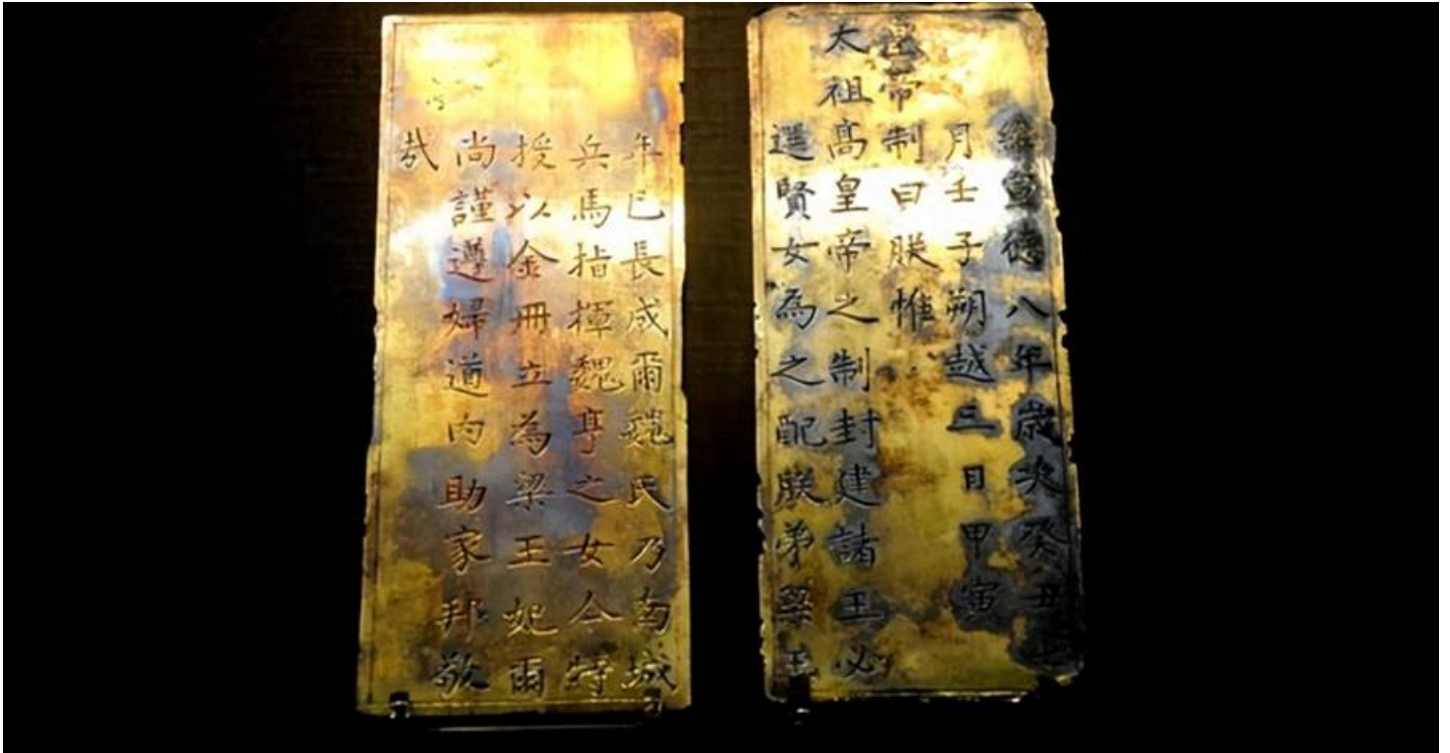 維宣德八年歲次癸丑
月壬子朔越三日甲寅
皇帝制曰朕惟
太祖高皇帝之制封建諸王必
選賢女為之配朕弟梁王
年已長成爾魏氏乃南城
兵馬指揮魏亨之女今特
授以金冊立為梁王妃爾
尚謹遵婦道內助家邦敬
哉